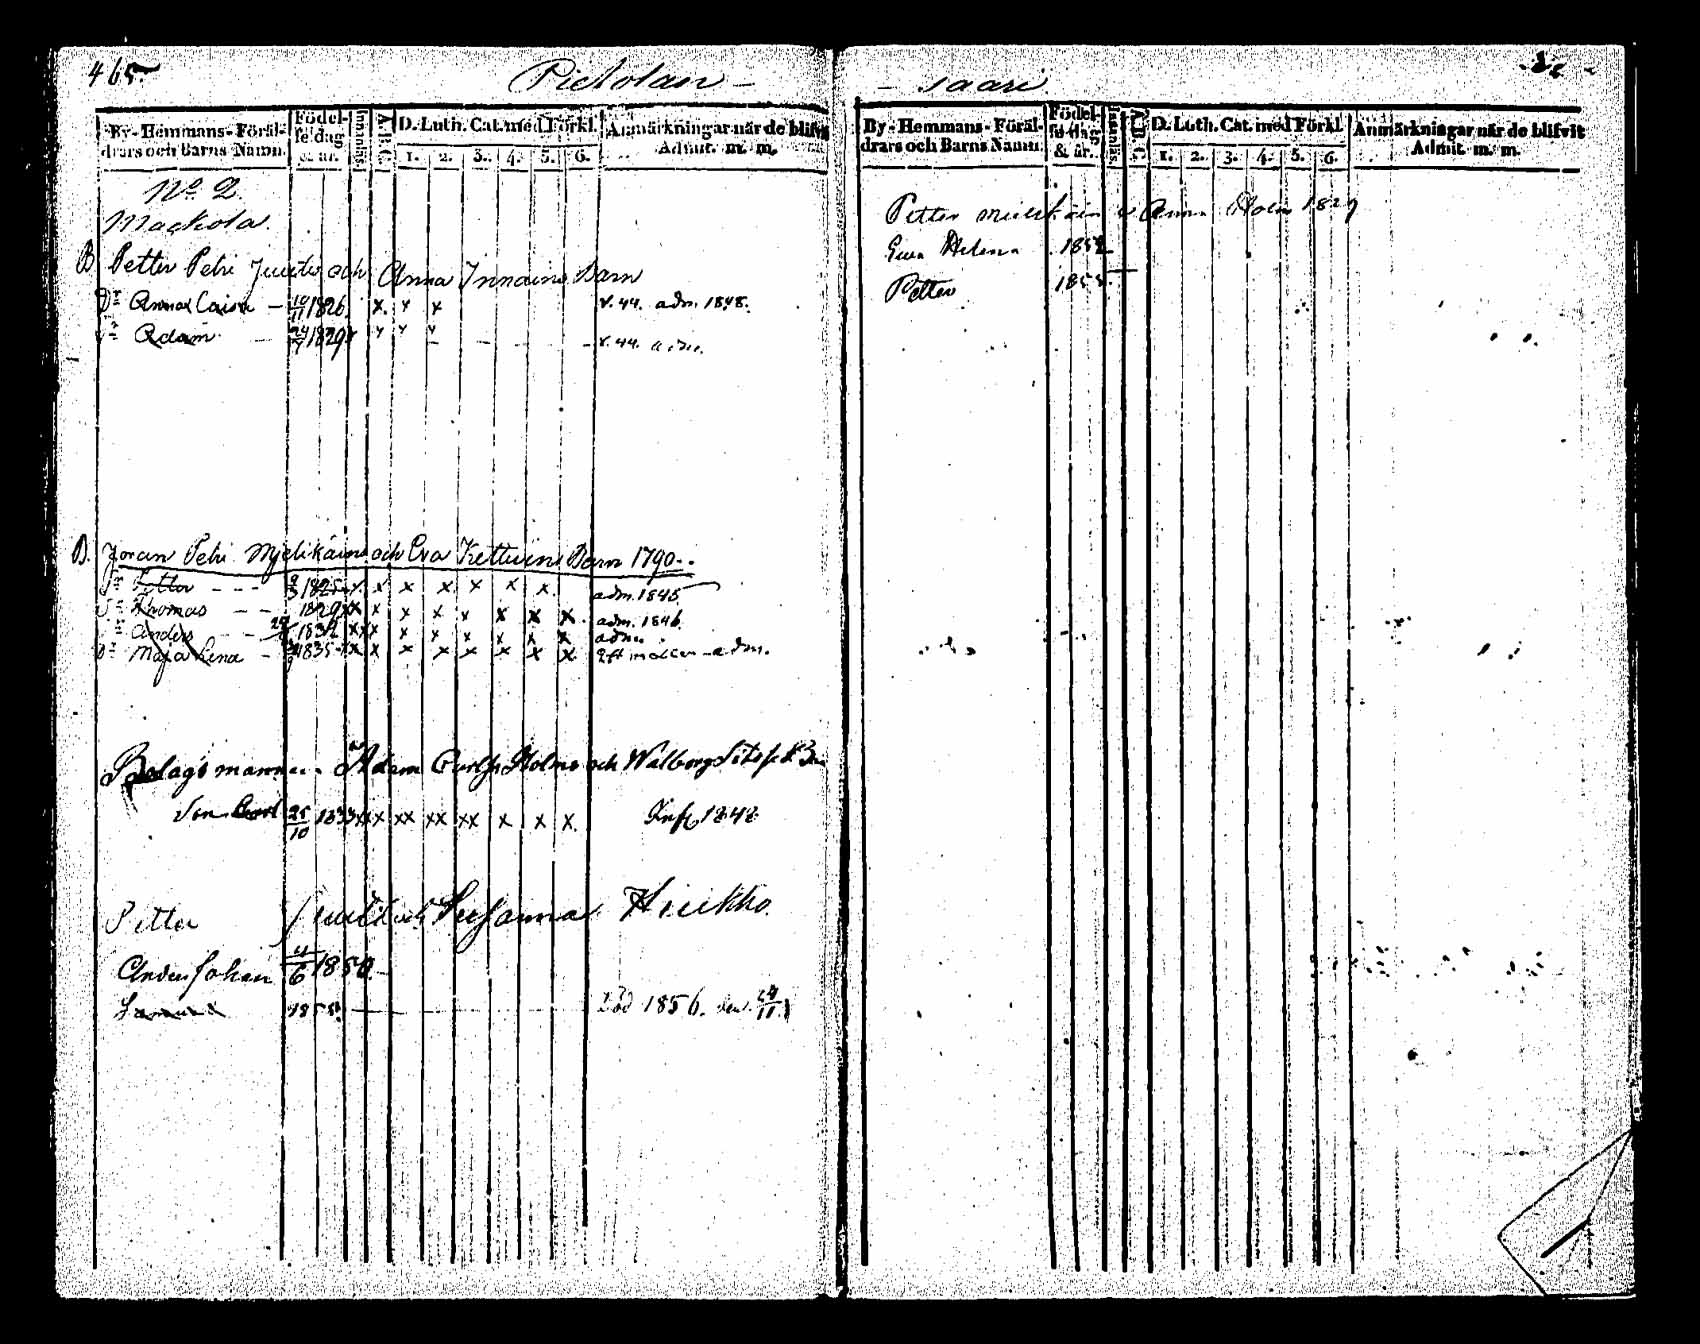 465
Pietolan - - saari
By-Hemmans-Föräl-
drars och Barns Namn.
Födel-
se dag
& år.
Innanläs.
A.B.C.
D. Luth. Cat. med Förkl.
1. 2. 3. 4. 5. 6.
Anmärkningar när de blifvit
Admit. m. m.
No 2.
Mackola.
B Petter Petri och Anna Innainens Barn
Dr Anna Caisa - 10/11 1826. x. x x v. 44. adm. 1848.
Adam - 24/7 1829 x x x v. 44. adm.
B. Jöran Petri Mjelikäinen och Eva Kettuinens Barn 1790
Petter - - - 1825 x x x x x x x adm. 1845
Thomas - - 1829 xx x x x x x x x adm. 1846.
Anders - 1832 xxx x x x x x x adm.
Dr Maja Lena - 1835 x x x x x x x x adm.
Bolagsmannen Adam Carlss Holms och Walborg
Son Carl 25/10 1833 xxx xx xx xx x x x. 1848
Petter och Susanna Hiukko.
Anders Johan 11/6 1850.
1855. - - - Död 1856. den 24/11
By-Hemmans-Föräl-
drars och Barns Namn.
Födel-
se dag
& år.
Innanläs.
A.B.C.
D. Luth. Cat. med Förkl.
1. 2. 3. 4. 5. 6.
Anmärkningar när de blifvit
Admit. m. m.
Petter Anna Holm 1829
Eva Helena 1852
Petter 1855.